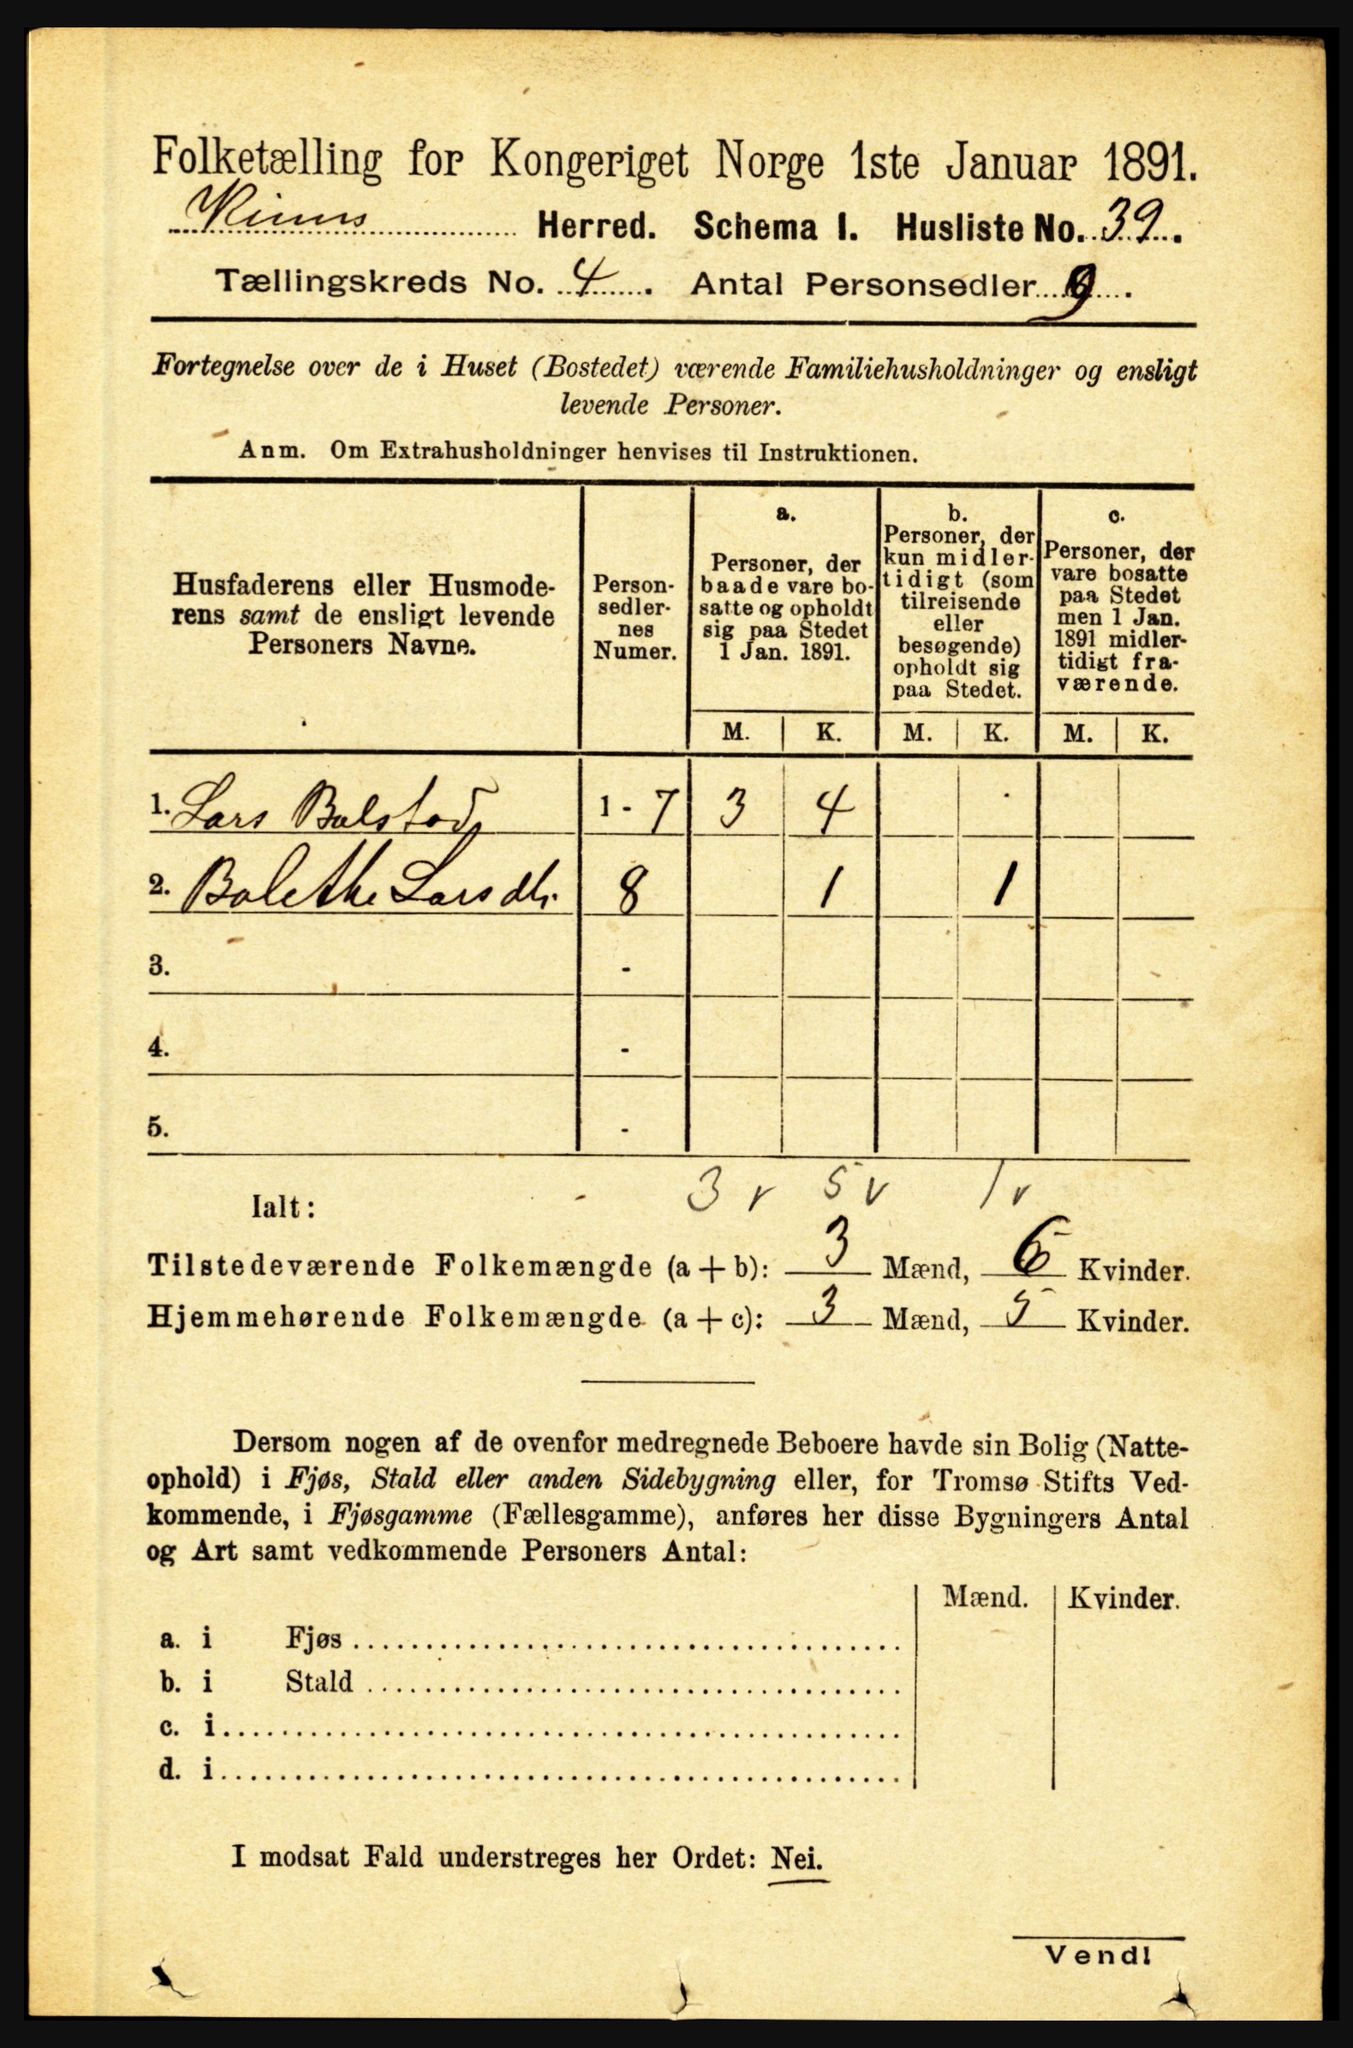 Folketælling for Kongeriget Norge 1ste Januar 1891.
Kinns Herred. Schema I. Husliste No. 39.
Tællingskreds No. 4. Antal Personsedler 9.
Fortegnelse over de i Huset (Bostedet) værende Familiehusholdninger og ensligt
levende Personer.
Anm. Om Extrahusholdninger henvises til Instruktionen.
Husfaderens eller Husmode-
rens samt de ensligt levende
Personers Navne.
Person-
sedler-
nes
Numer.
a.
Personer, der
baade vare bo-
satte og opholdt
sig paa Stedet
1 Jan. 1891.
b.
Personer, der
kun midler-
tidigt (som
tilreisende
eller
besøgende)
opholdt sig
paa Stedet.
c.
Personer, der
vare bosatte
paa Stedet
men 1 Jan.
1891 midler-
tidigt fra-
værende.
M. K. M. K. M. K.
1. Lars Bolstad 1 - 7 3 4
2. Bolethe Larsdtr. 8 1 1
3. -
4. -
5. -
Ialt: 3 v 5 v 1 v
Tilstedeværende Folkemængde (a + b): 3 Mænd, 6 Kvinder.
Hjemmehørende Folkemængde (a + c): 3 Mænd, 5 Kvinder.
Dersom nogen af de ovenfor medregnede Beboere havde sin Bolig (Natte-
ophold) i Fjøs, Stald eller anden Sidebygning eller, for Tromsø Stifts Ved-
kommende, i Fjøsgamme (Fællesgamme), anføres her disse Bygningers Antal
og Art samt vedkommende Personers Antal:
Mænd. Kvinder.
a. i Fjøs
b. i Stald
c. i
d. i
I modsat Fald understreges her Ordet: Nei.
Vend!